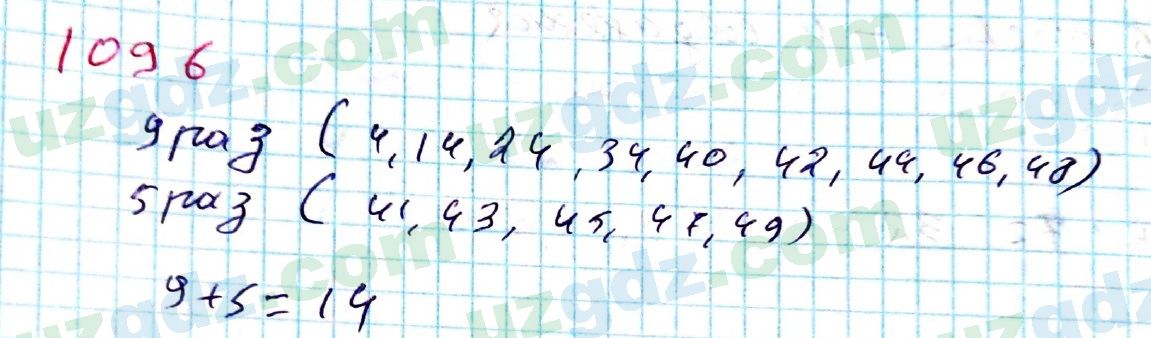 1096
9 раз ( 4, 14, 24, 34, 40, 42, 44, 46, 48)
5 раз ( 41, 43, 45, 47, 49)
9+5=14
uzgdz.com